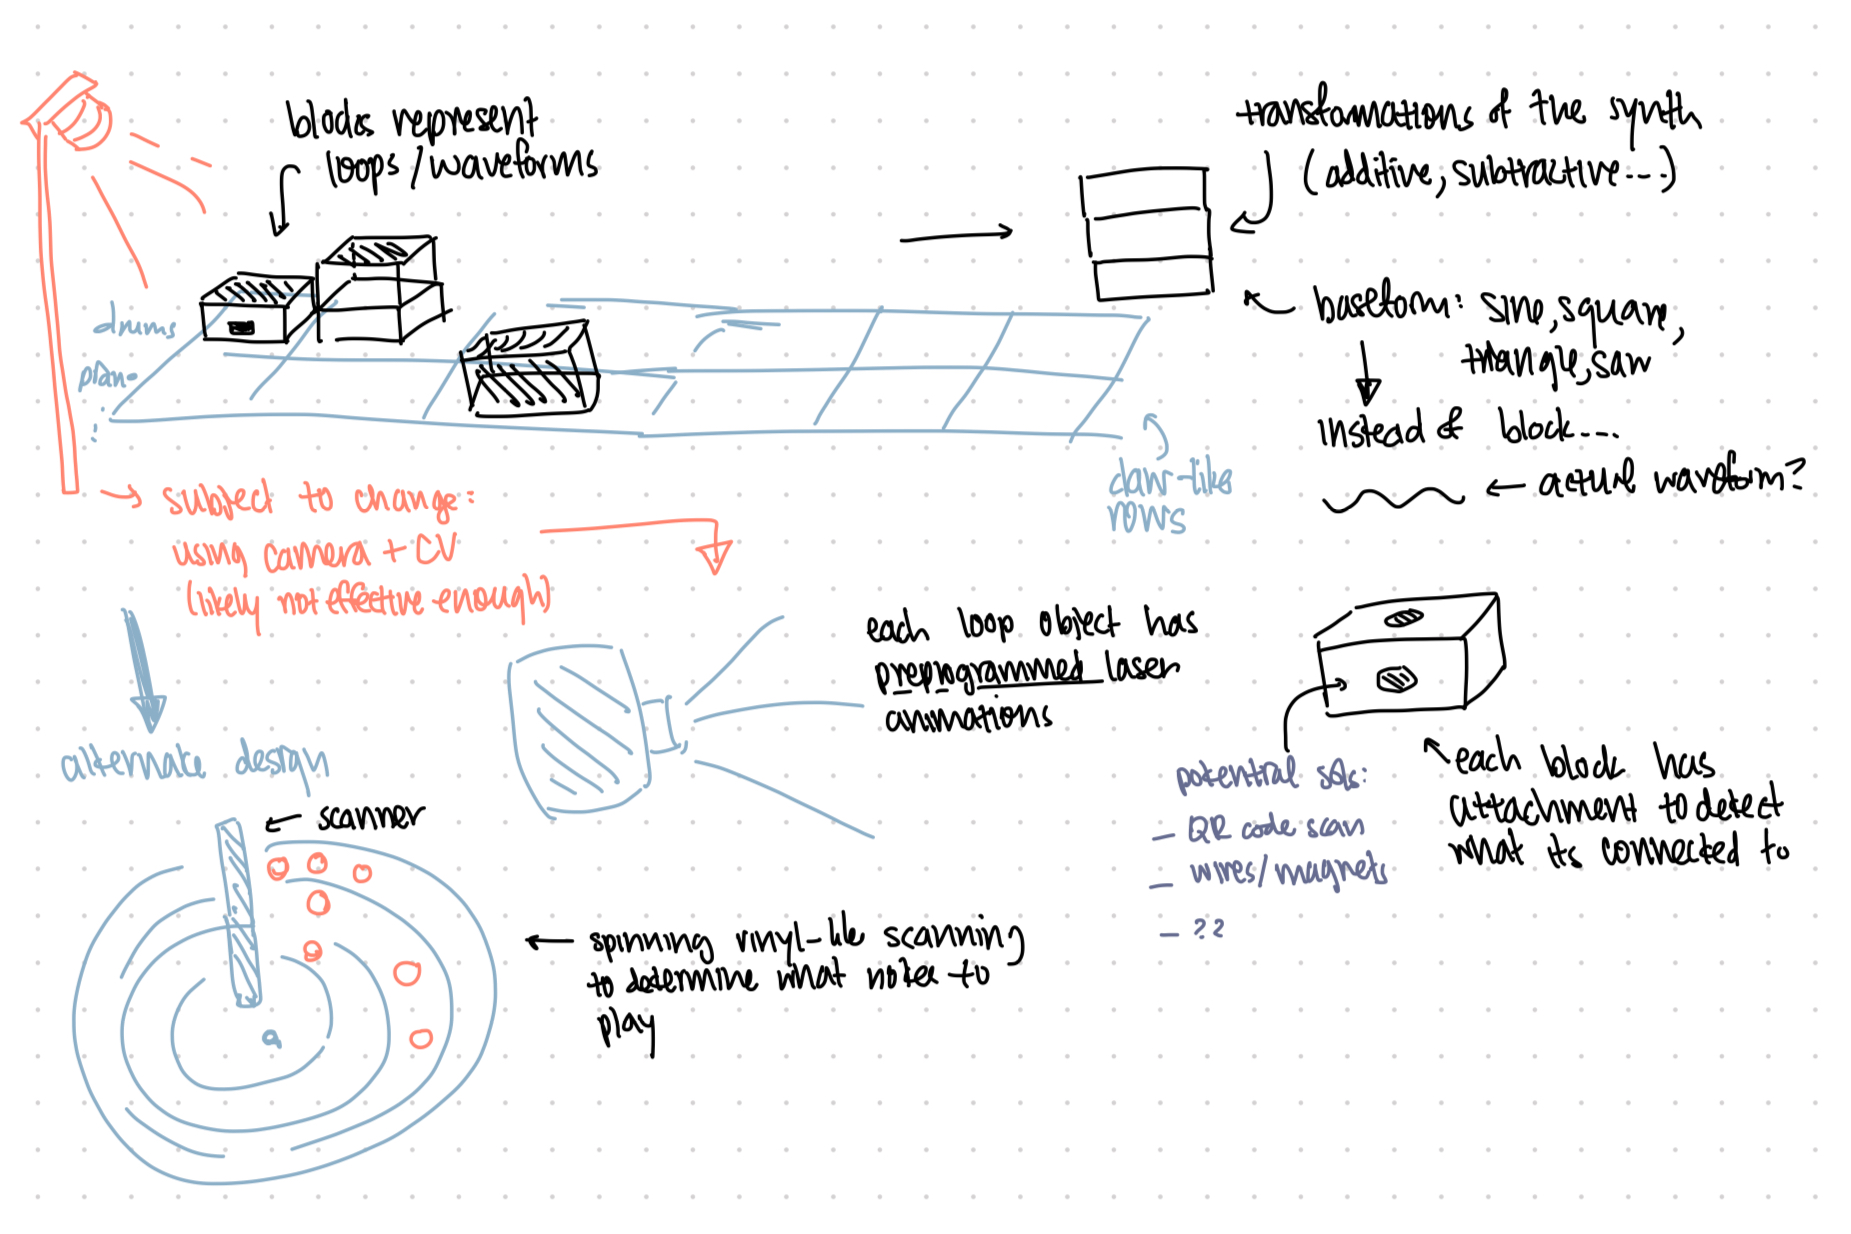 blocks represent
loops/waveforms
transformations of the synth
(additive, subtractive...)
baseform: sine, square,
triangle, saw
instead of block...
actual waveform?
drums
daw-like
rows
subject to change:
using camera + CV
(likely not effective enough)
each loop object has
preprogrammed laser
animations
alternate design
scanner
spinning vinyl-like scanning
to determine what notes to
play
potential sols:
- QR code scan
- wires/magnets
- ??
each block has
attachment to detect
what its connected to